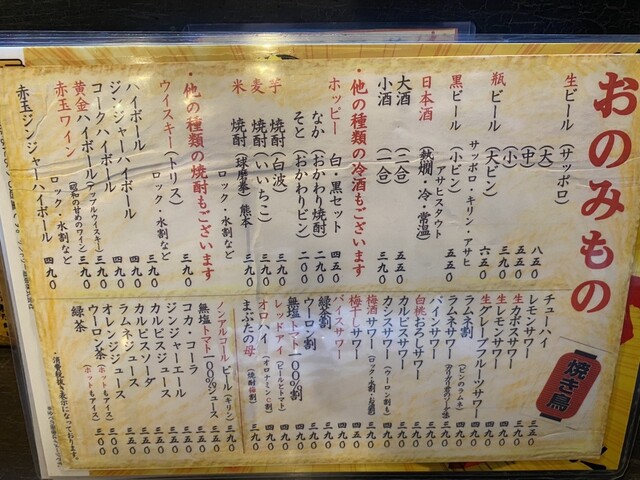 おのみもの
焼き鳥
生ビール（サッポロ）
（大） 八五〇
（中） 五五〇
（小） 三九〇
瓶ビール（大ビン） 六五〇
サッポロ・キリン・アサヒ
黒ビール（小ビン） 五五〇
アサヒスタウト
日本酒（熱燗・冷・常温）
大酒（二合） 五五〇
小酒（一合） 三九〇
・他の種類の冷酒もございます
ホッピー 白・黒セット 四五〇
なか（おかわり焼酎） 二九〇
そと（おかわりビン） 二〇〇
芋焼酎（白波） 三九〇
麦焼酎（いいちこ） 三九〇
米焼酎（球磨拳）熊本 三九〇
ロック・水割など
・他の種類の焼酎もございます
ウイスキー（トリス） 三九〇
ロック・水割など
ハイボール 三九〇
ジンジャーハイボール 四九〇
コークハイボール 四九〇
黄金ハイボール（アップルウイスキー） 三九〇
赤玉ワイン（昭和の甘めのワイン） 三九〇
ロック・水割など
赤玉ジンジャーハイボール 四九〇
チューハイ 三五〇
レモンサワー 三九〇
生カボスサワー
生レモンサワー
生グレープフルーツサワー
ラムネ割（ビンのラムネ）
ラムネサワー
パインサワー
白桃おろしサワー
カルピスサワー
カシスサワー（ウーロン割も）
梅酒サワー（ロック・水割・お湯割）
梅干しサワー
バイスサワー
緑茶割
ウーロン割
無塩トマト100％割
レッドアイ（ビールとトマト）
オロハイ（オロナミンC割）
まぶたの母（焼酎梅割） 三九〇
ノンアルコールビール（キリン） 三九〇
無塩トマト100％ジュース 三九〇
コカ・コーラ 三五〇
ジンジャーエール 三五〇
カルピスジュース 三五〇
カルピスソーダ 三五〇
ラムネジュース 三五〇
オレンジジュース 三五〇
ウーロン茶（ホットもアイス） 三〇〇
緑茶（ホットもアイス） 三〇〇
・消費税抜き表示になっております。